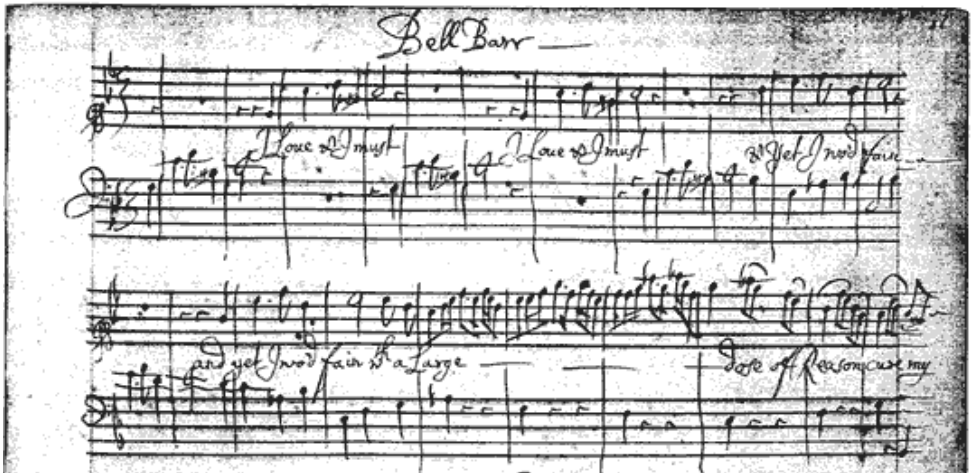 Bell Barr
I Loue & I must I Loue & I must & Yet I wod fain
and yet I wod fain wth a Large dose off Reason cure my